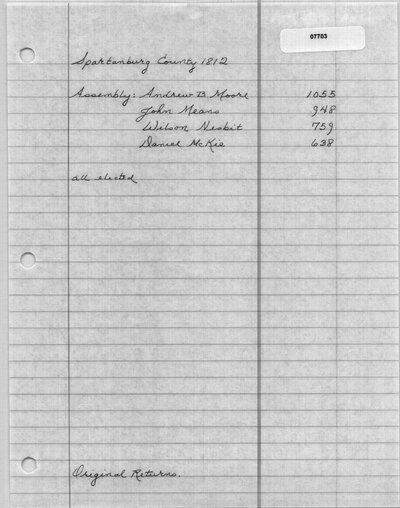 07703
Spartanburg County 1812
Assembly: Andrew B Moore 1055
John Means 948
Wilson Nesbit 759
Daniel McKie 638
all elected
Original Returns.